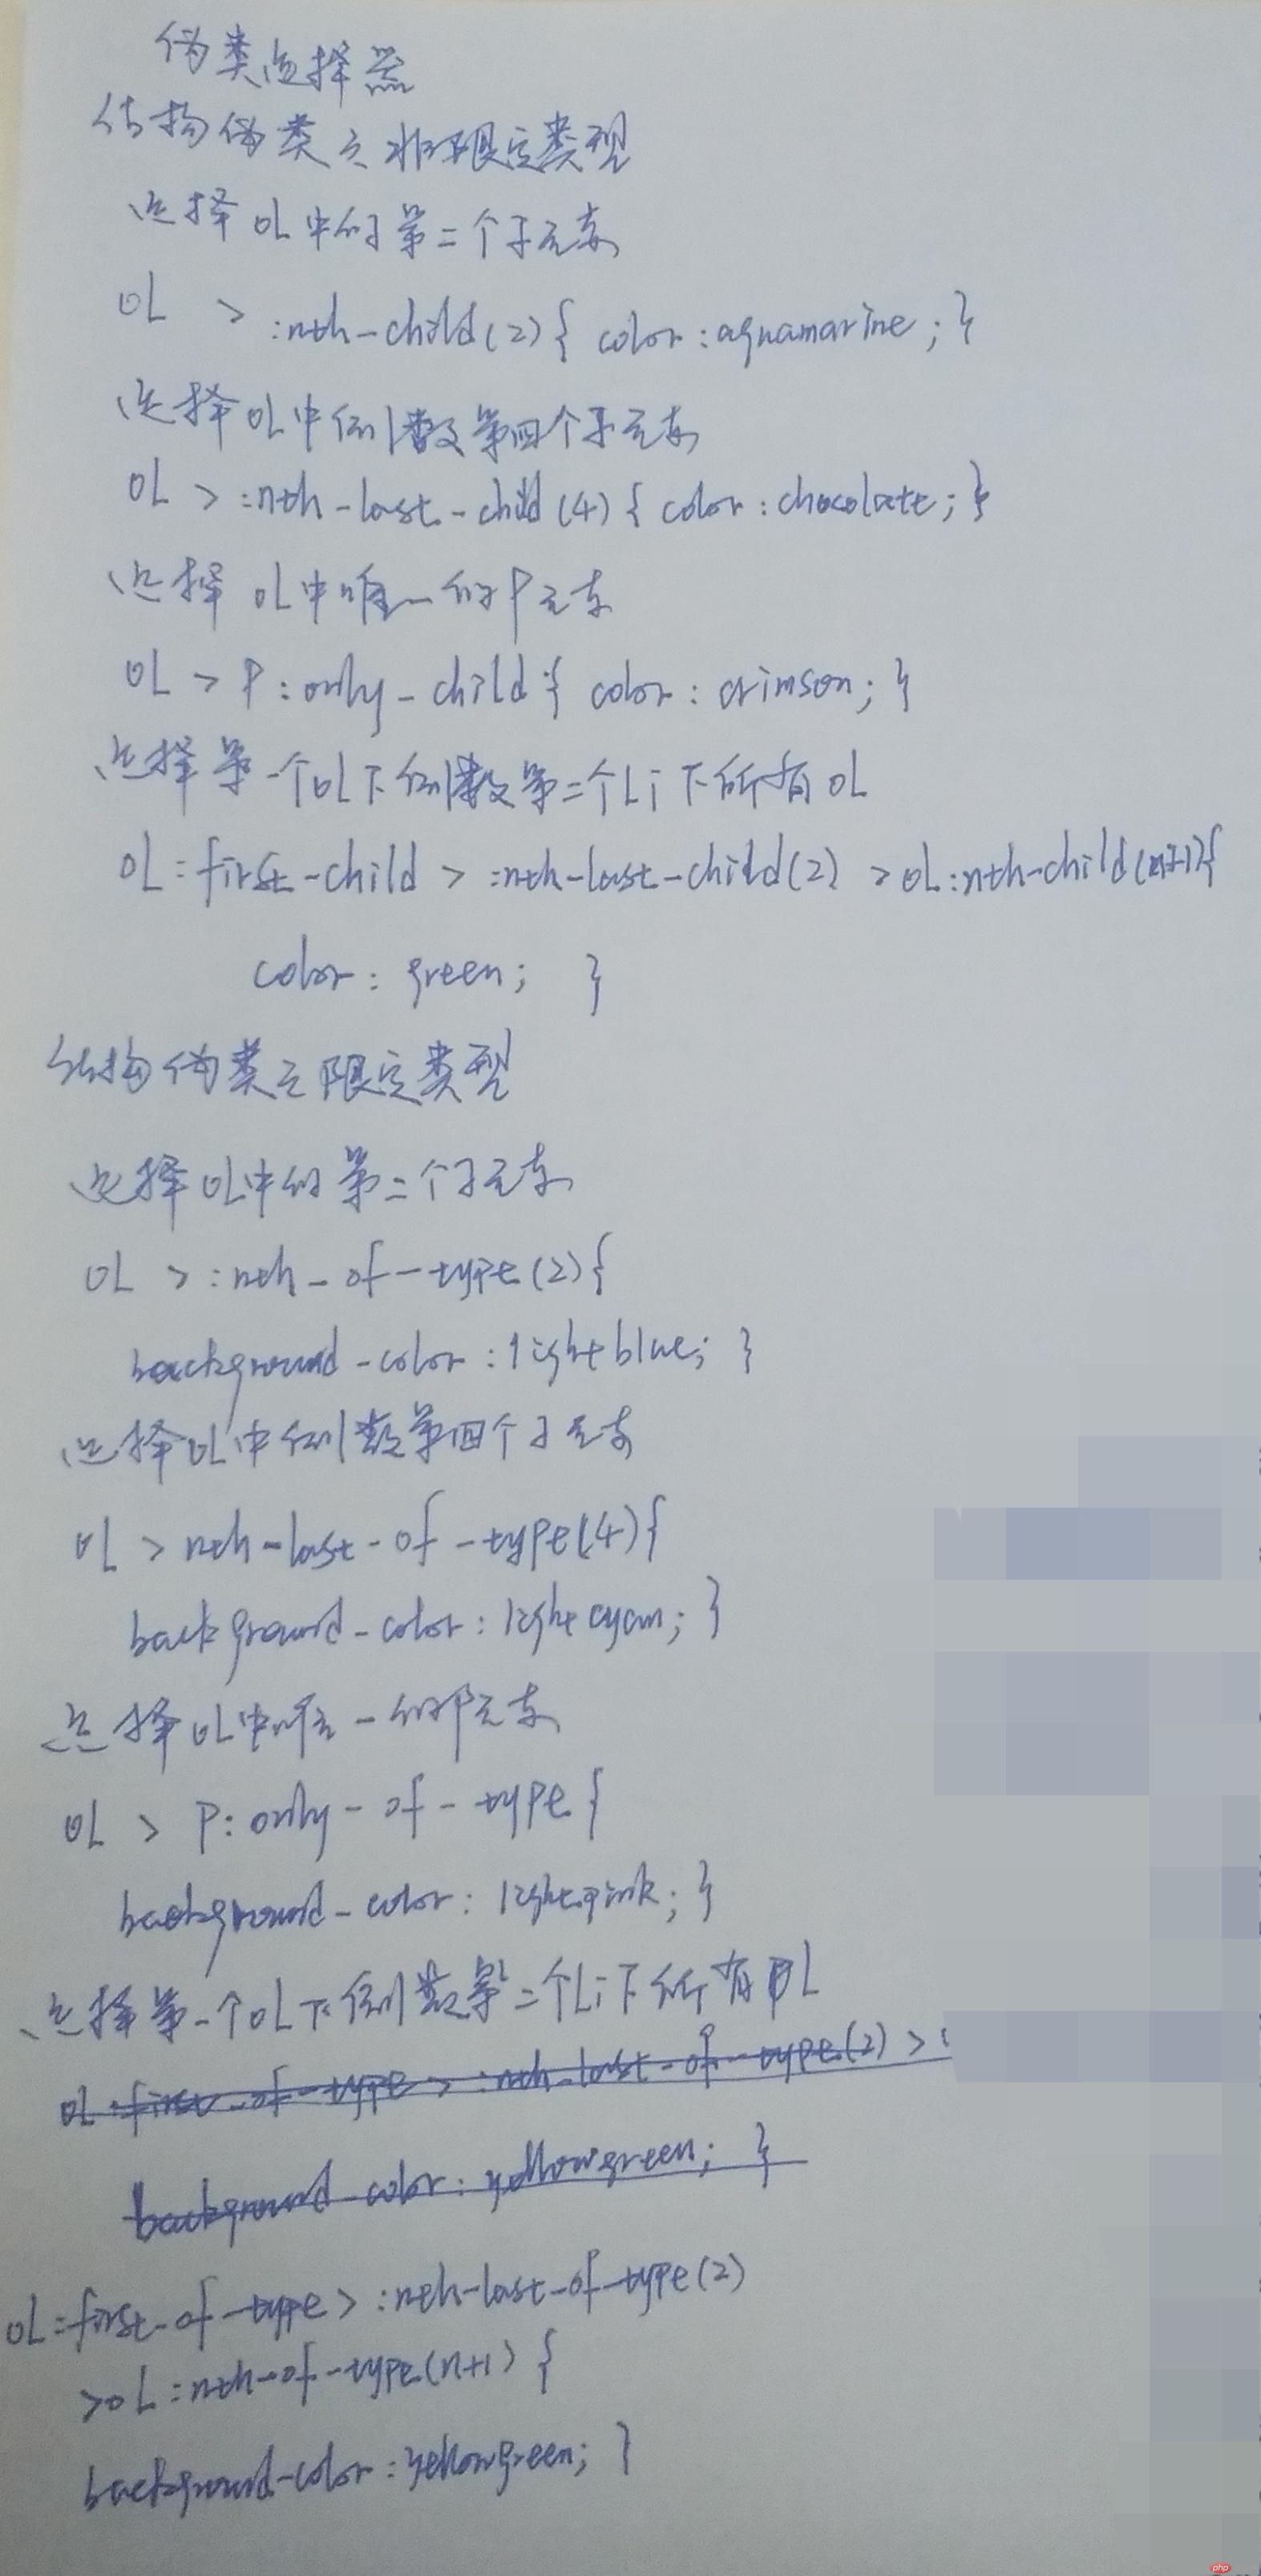 伪类选择器
结构伪类之非限定类型
选择OL中的第二个子元素
OL > :nth-child(2){ color:aquamarine; }
选择OL中倒数第四个子元素
OL > :nth-last-child(4){ color:chocolate; }
选择OL中唯一的P元素
OL > P:only-child{ color: crimson; }
选择第一个OL下倒数第二个Li下所有OL
OL:first-child > :nth-last-child(2) > OL:nth-child(n+1){
color: green; }
结构伪类之限定类型
选择OL中的第二个子元素
OL > :nth-of-type(2){
background-color:lightblue; }
选择OL中倒数第四个子元素
OL > nth-last-of-type(4){
background-color:lightcyan; }
选择OL中唯一的P元素
OL > P:only-of-type {
background-color: lightpink; }
选择第一个OL下倒数第二个Li下所有OL
OL:first-of-type > :nth-last-of-type(2) >
background-color: yellowgreen; }
OL:first-of-type > :nth-last-of-type(2)
>OL:nth-of-type(n+1) {
background-color:yellowgreen; }
php